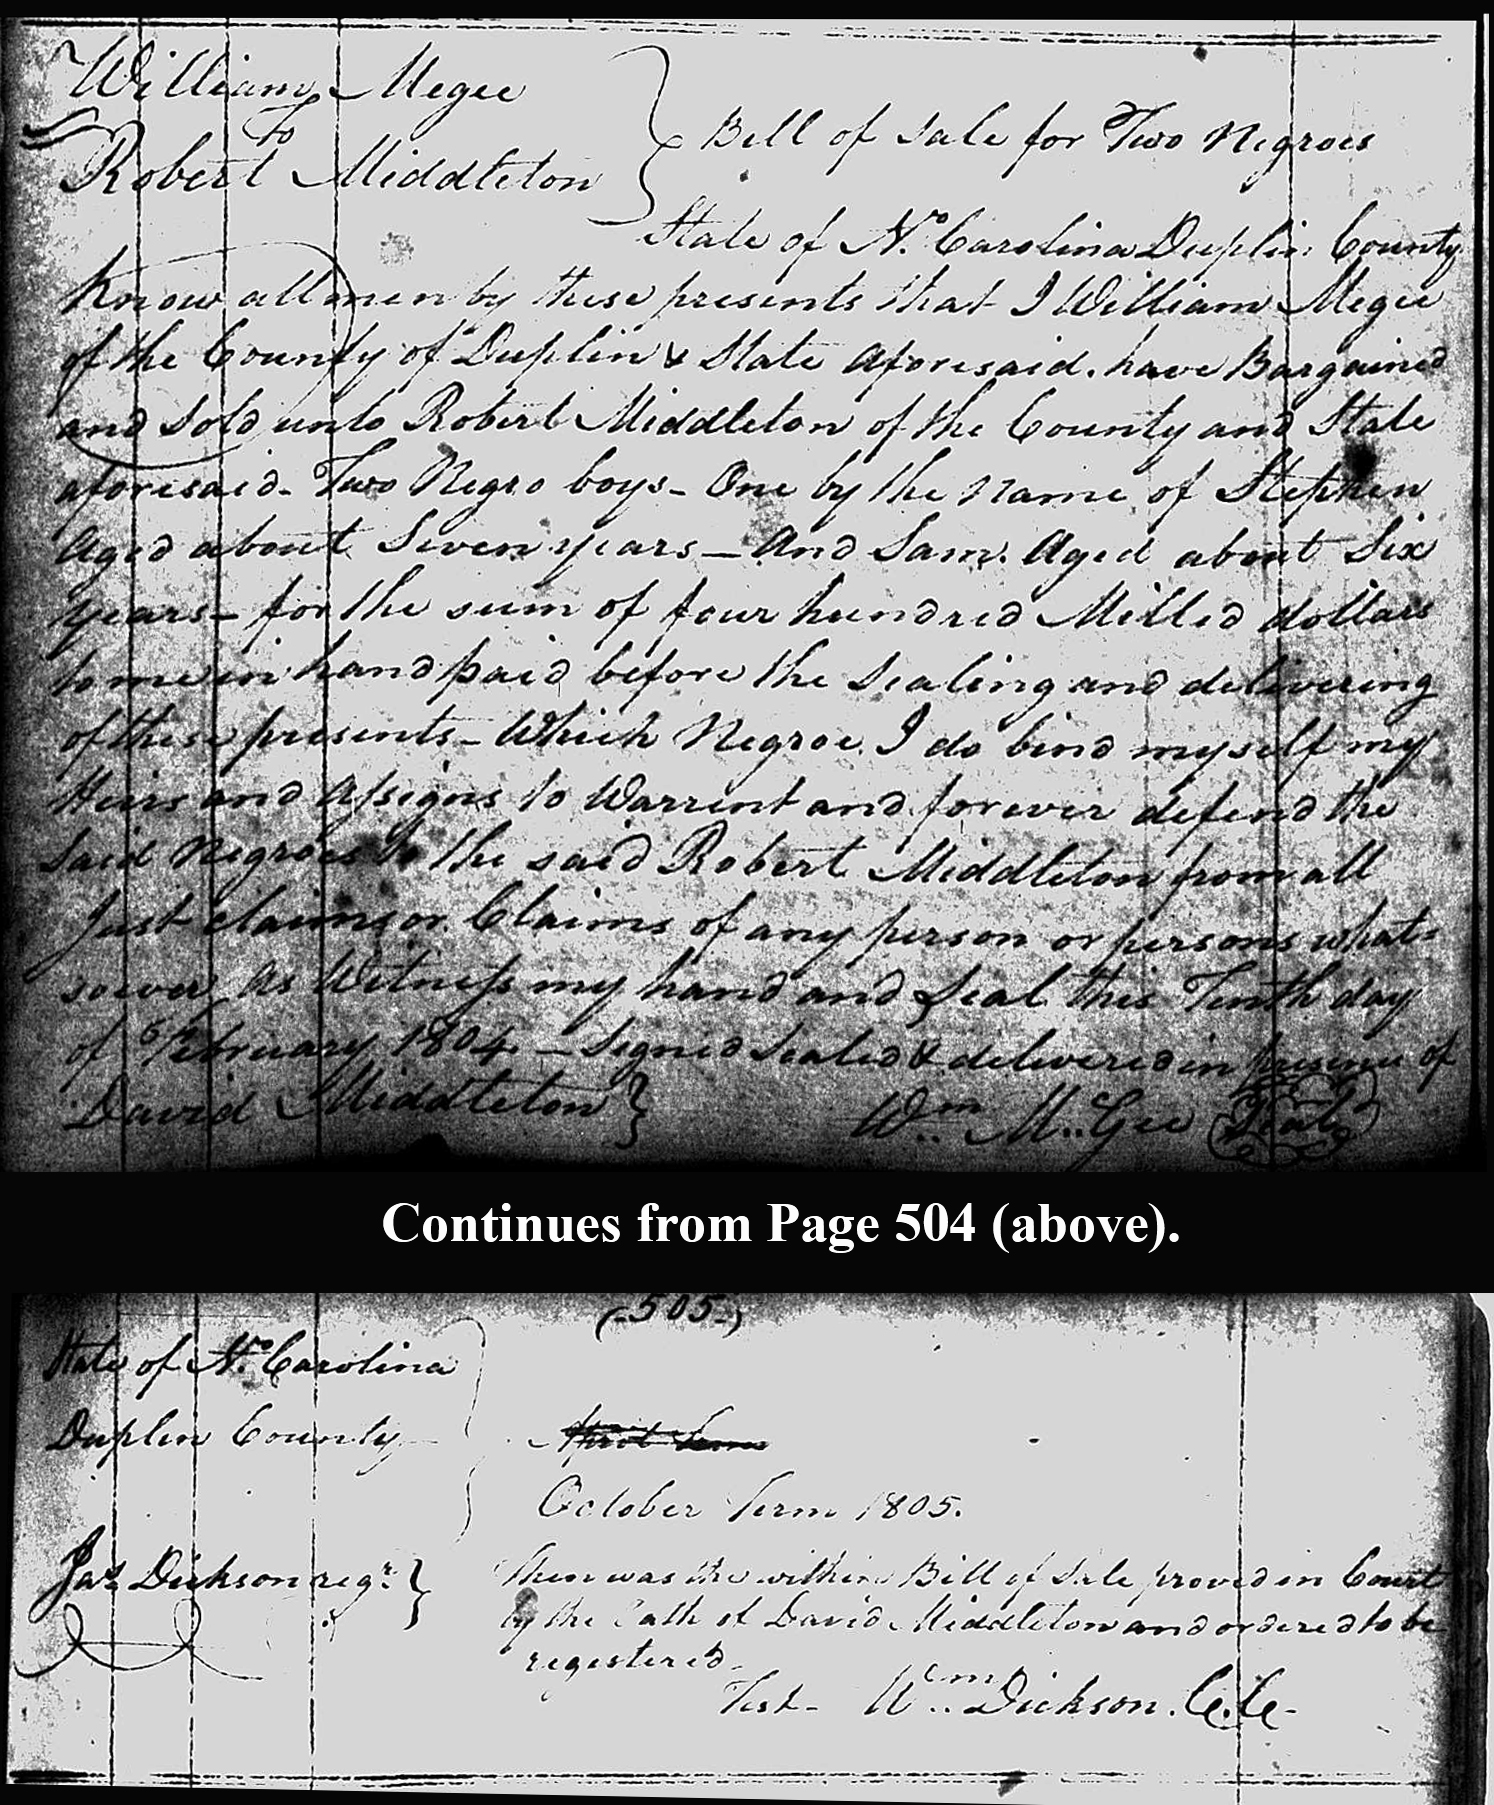 William Megee
To
Robert Middleton
Bill of Sale for Two Negroes
State of No. Carolina Duplin County
Know all men by these presents that I William Megee
of the County of Duplin & State aforesaid. have Bargained
and Sold unto Robert Middleton of the County and State
aforesaid - Two Negro boys - One by the Name of Stephen
Aged about Seven years - And Sam. Aged about Six
years - for the sum of four hundred Milled dollars
to me in hand paid before the Sealing and delivering
of these presents - Which Negroe. I do bind myself my
Heirs and Assigns to Warrent and forever defend the
Said Negroes to the said Robert Middleton from all
Just claims or Claims of any person or persons what=
soever As Witness my hand and Seal this Tenth day
of February 1804. - Signed Sealed & delivered in presence of
David Middleton }
Wm. McGee Seal
Continues from Page 504 (above).
(-505-)
State of No. Carolina
Duplin County
April Term
October Term 1805.
Jas. Dickson regr. }
Then was the within Bill of Sale proved in Court
by the Oath of David Middleton and ordered to be
registered -
Test - Wm. Dickson. C.C. -